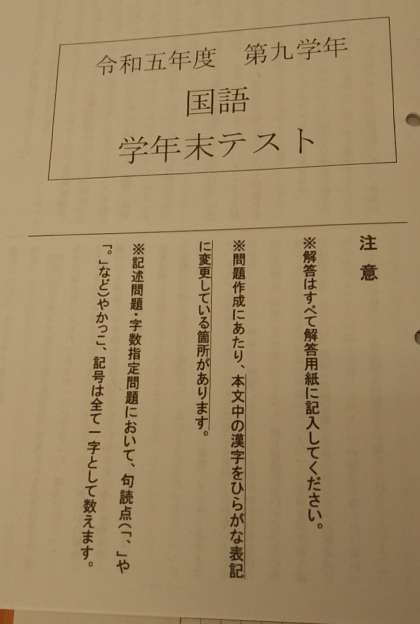 令和五年度　第九学年
国語
学年末テスト
注意
※解答はすべて解答用紙に記入してください。
※問題作成にあたり、本文中の漢字をひらがな表記
に変更している箇所があります。
※記述問題・字数指定問題において、句読点(「、」や
「。」など)やかっこ、記号は全て一字として数えます。